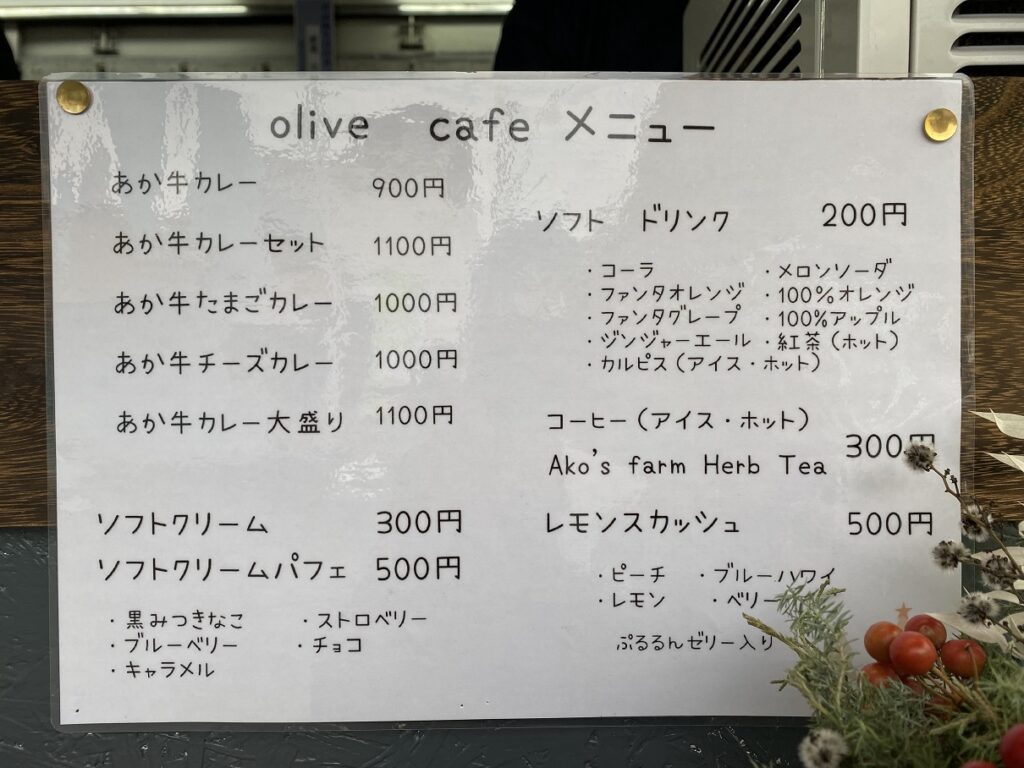 olive cafe メニュー
あか牛カレー 900円
あか牛カレーセット 1100円
あか牛たまごカレー 1000円
あか牛チーズカレー 1000円
あか牛カレー大盛り 1100円
ソフトクリーム 300円
ソフトクリームパフェ 500円
・黒みつきなこ ・ストロベリー
・ブルーベリー ・チョコ
・キャラメル
ソフト ドリンク 200円
・コーラ ・メロンソーダ
・ファンタオレンジ ・100%オレンジ
・ファンタグレープ ・100%アップル
・ジンジャーエール ・紅茶(ホット)
・カルピス(アイス・ホット)
コーヒー(アイス・ホット)
300円
Ako's farm Herb Tea
レモンスカッシュ 500円
・ピーチ ・ブルーハワイ
・レモン ・ベリー
ぷるるんゼリー入り